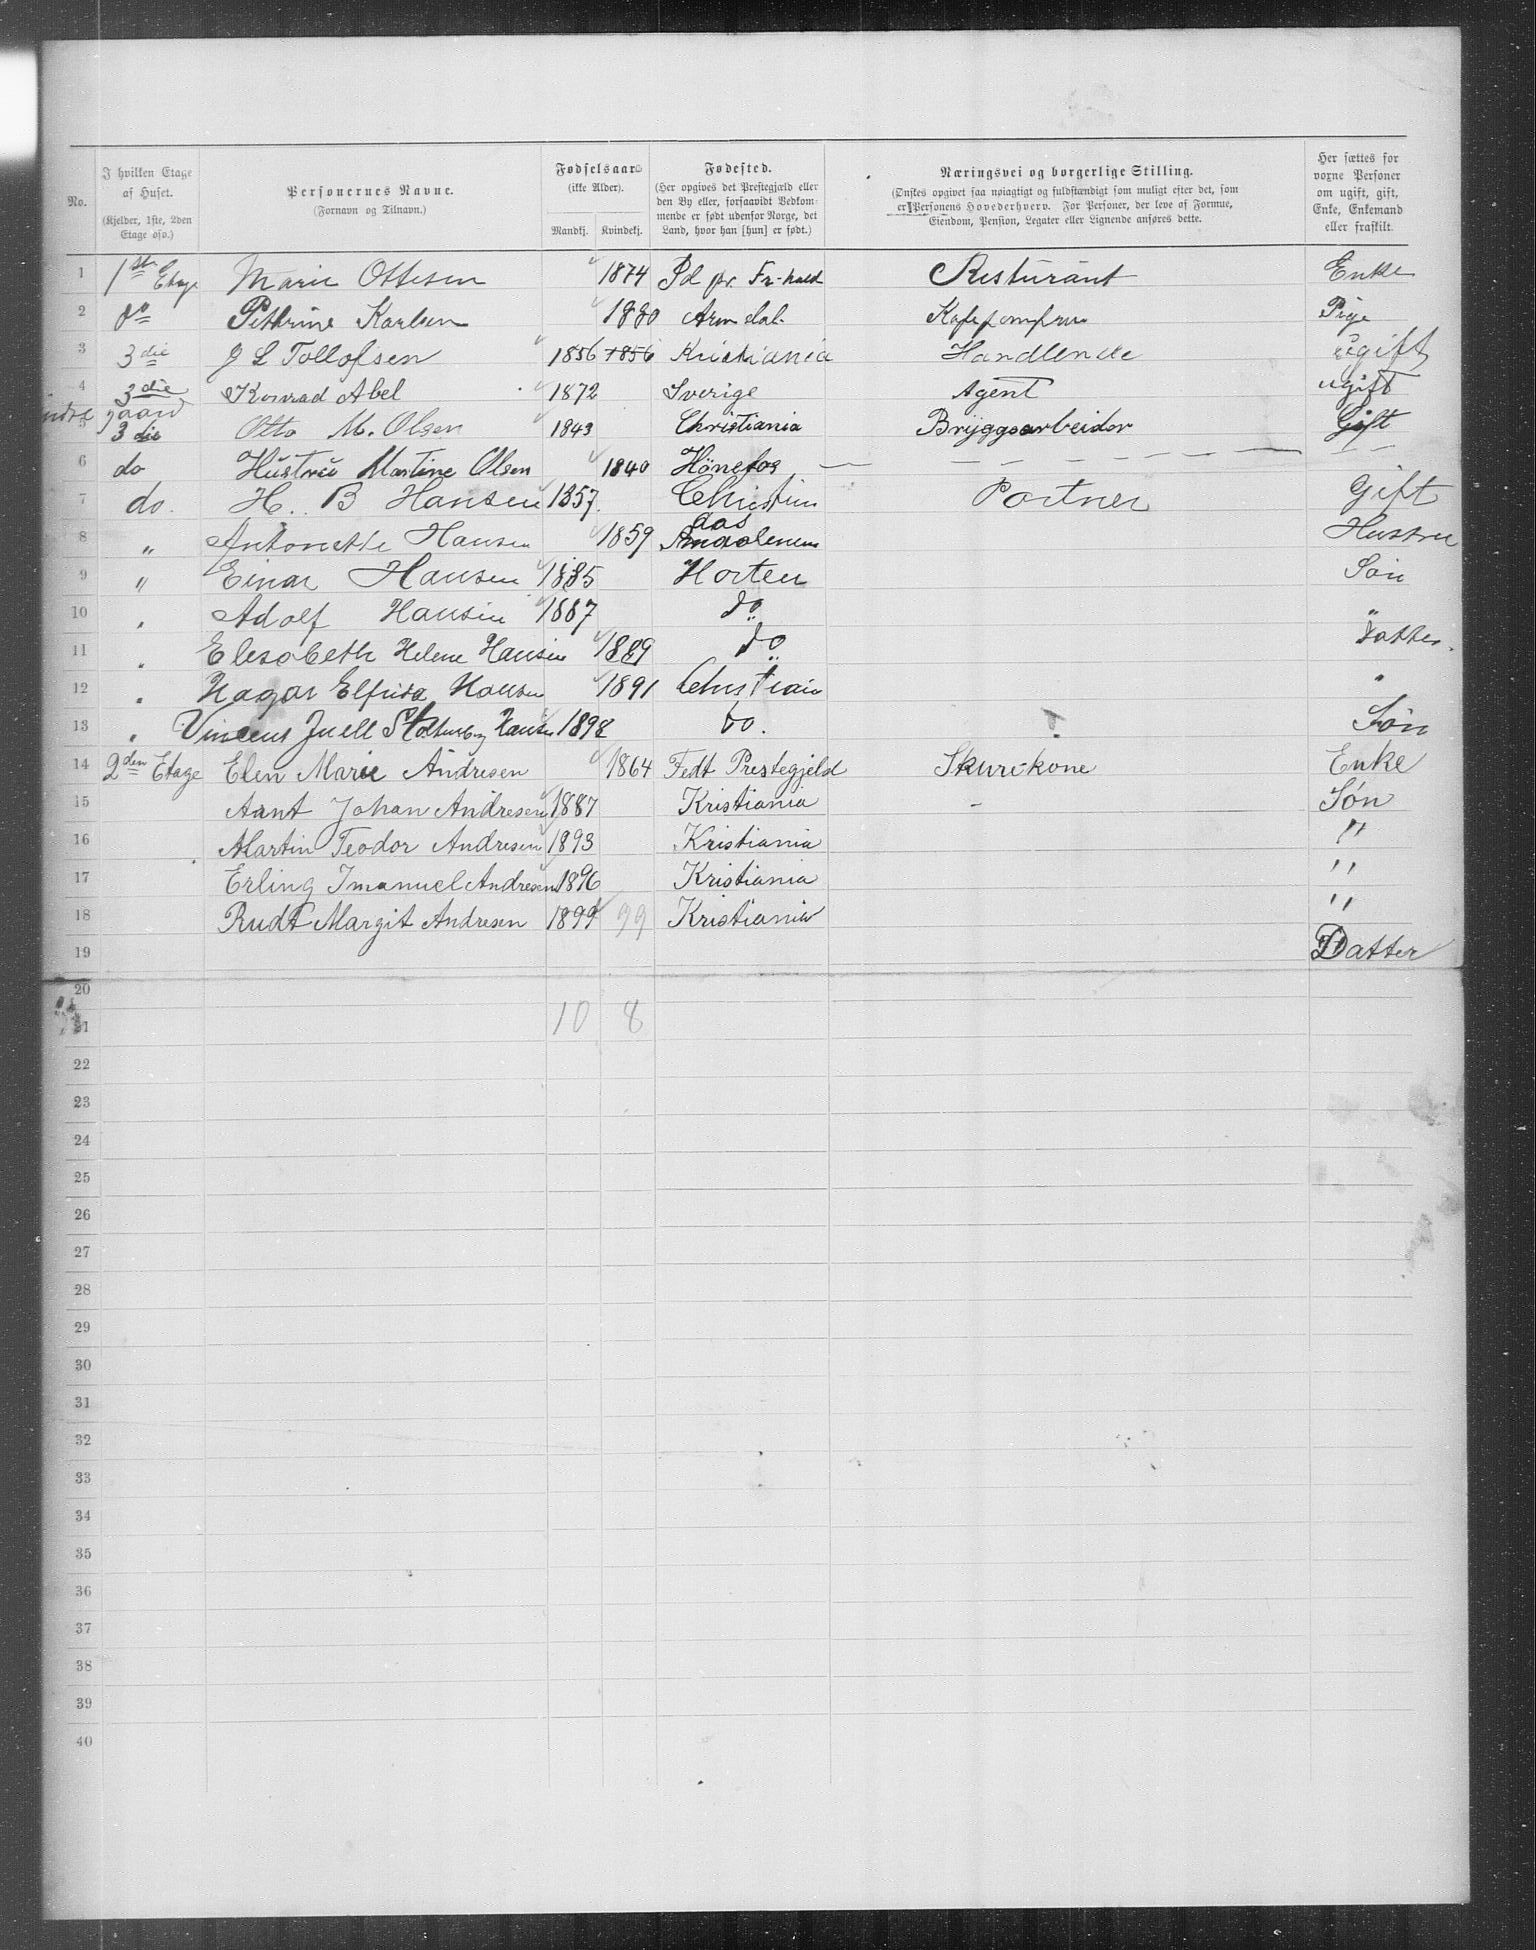 No.
I hvilken Etage af Huset.
(Kjelder, 1ste, 2den Etage osv.)
Personernes Navne.
(Fornavn og Tilnavn.)
Fødselsaar
(ikke Alder).
Mandkj. Kvindekj.
Fødested.
(Her opgives det Prestegjæld eller den By eller, forsaavidt Vedkommende er født udenfor Norge, det Land, hvor han [hun] er født.)
Næringsvei og borgerlige Stilling.
(Ønskes opgivet saa nøiagtigt og fuldstændigt som muligt efter det, som er Personens Hovederhverv. For Personer, der leve af Formue, Eiendom, Pension, Legater eller Lignende anføres dette.
Her sættes for voxne Personer om ugift, gift, Enke, Enkemand eller fraskilt.
1 1ste Etage Marie Ottesen 1874 Pd pr. Fr-hald Resturant Enke
2 do Pethrine Karlsen 1880 Arndal Kafejomfru Pige
3 3die J L Tollofsen 1856 1856 Kristiania Handlende ugift
4 3die Konrad Abel 1872 Sverige Agent ugift
indre gaard
5 3die Otto M. Olsen 1843 Christiania Bryggearbeider Gift
6 do Hustru Martine Olsen 1840 Hönefos — — — — — — —
7 do. H. B Hansen 1857. Christian Portner Gift
8 " Antonette Hansen 1859 Hustru
9 " Einar Hansen 1885 Horten Sön
10 " Adolf Hansen 1887 do "
11 " Elesabeth Helene Hansen 1889 do Datter.
12 " Hagar Elfrida Hansen 1891 Christian "
13 " Vincens Juell Stoltenberg Hansen 1898 do. Søn
14 2den Etage Elen Marie Andresen 1864 Fedt Prestegjeld Skurekone Enke
15 Arnt Johan Andresen 1887 Kristiania - Søn
16 Martin Teodor Andresen 1893 Kristiania "
17 Erling Imanuel Andresen 1896 Kristiania "
18 Rudt Margit Andresen 1899 99 Kristiania "
19 Datter
20
21 10 8
22
23
24
25
26
27
28
29
30
31
32
33
34
35
36
37
38
39
40